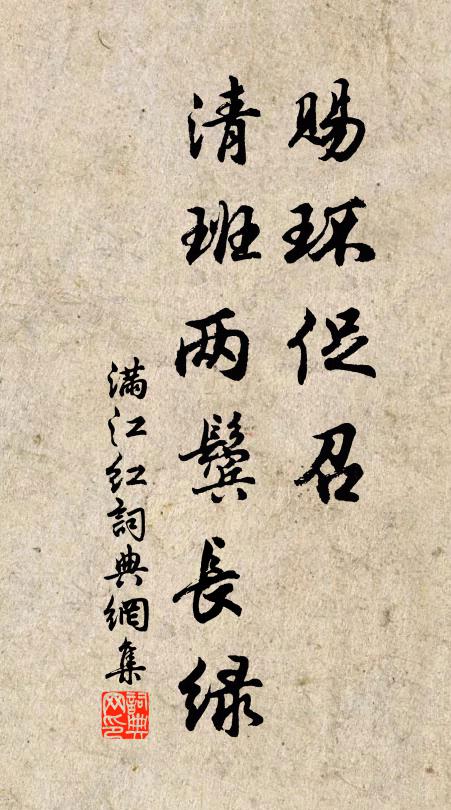 赐环促召
清班两鬓长绿
满江红词典網集
詞典网印